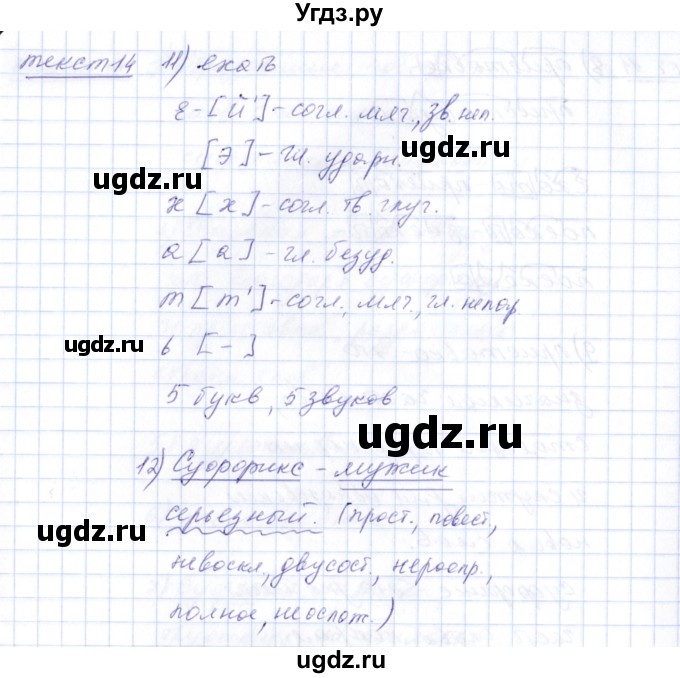 Угдз.ру
текст 14 11) ехать
е - [й'] - согл. мяг., зв. неп.
[э] - гл. ударн.
х [х] - согл. тв. глух.
а [а] - гл. безуд.
т [т'] - согл., мяг., гл. непар.
ь [-]
5 букв, 5 звуков
12) - мужик
серьезный. (прост., повест,
невоскл, двусост., нераспр.,
полное, неослож.)
ugdz.ru
ugdz.ru
ugdz.ru
ugdz.ru
ugdz.ru
ugdz.ru
ugdz.ru
ugdz.ru
ugdz.ru
ugdz.ru